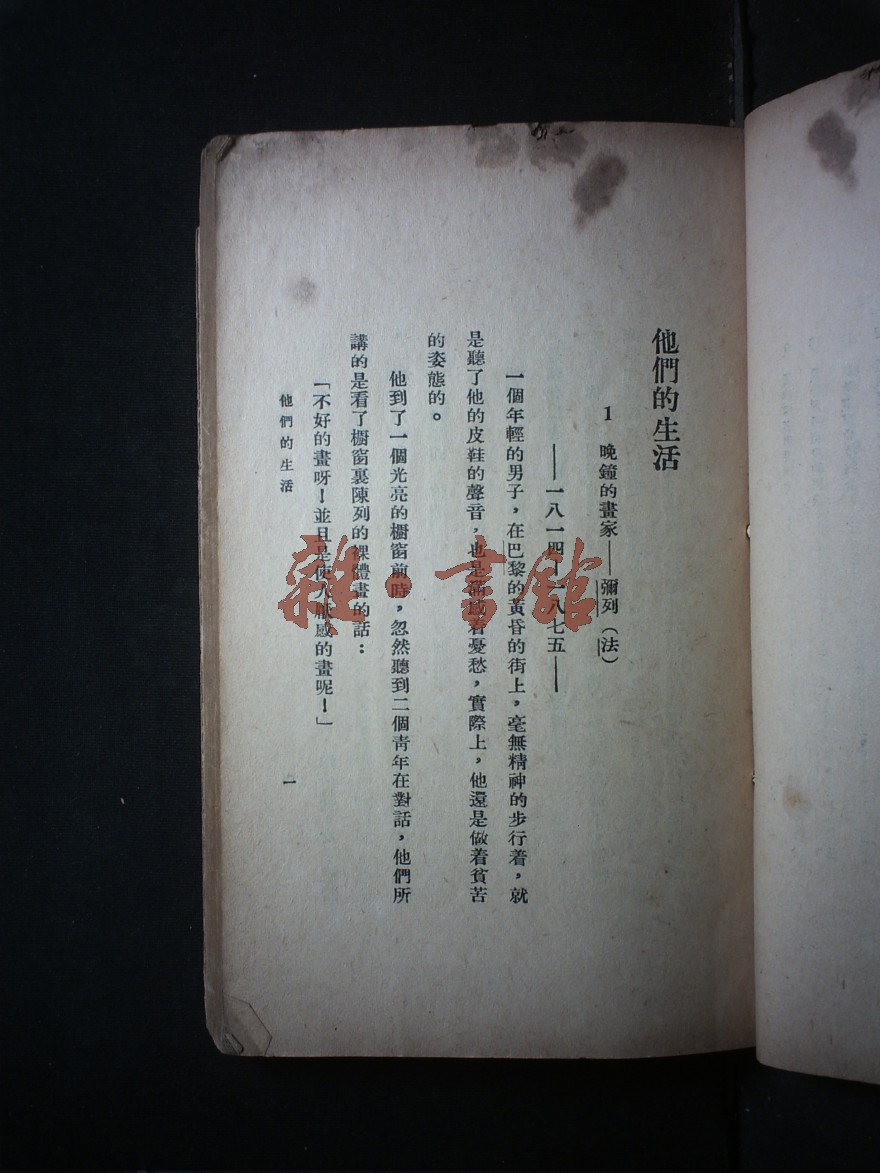 他們的生活
1 晚鐘的畫家——彌列（法）
——一八一四—一八七五——
一個年輕的男子，在巴黎的黃昏的街上，毫無精神的步行着，就
是聽了他的皮鞋的聲音，也是滿感着憂愁，實際上，他還是做着貧苦
的姿態的。
他到了一個光亮的櫥窗前時，忽然聽到二個靑年在對話，他們所
講的是看了櫥窗裏陳列的裸體畫的話：
「不好的畫呀！並且是使人厭感的畫呢！」
他們的生活
一
雜·書館